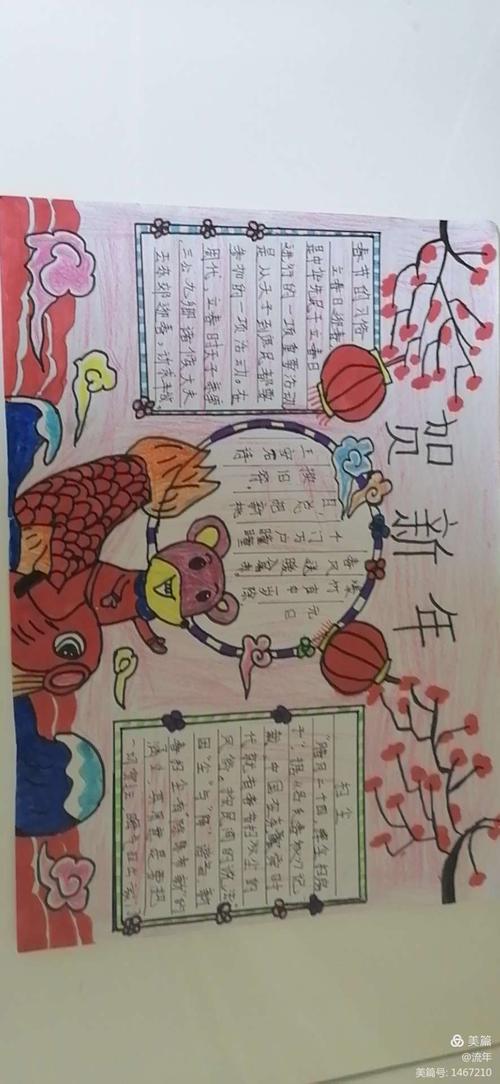 贺新年
春节的习俗
立春日迎春
是中华先民于立春日
进行的一项重要活动
是从天子到庶民都要
参加的一项活动。在
周代,立春时天子亲率
三公九卿诸侯大夫
去东郊迎春,祈求丰收。
元日
爆竹声中一岁除
春风送暖入屠苏
千门万户瞳瞳
日总把新桃
换旧符.
扫尘
"腊月二十四,掸尘扫房
子",据《吕氏春秋》记
载,中国在尧舜时
代就有春节扫尘的
风俗。按民间的说法
因"尘"与"陈"谐音,新
春扫尘有"除陈布新"的
涵义,其用意是要把
一切穷运、晦气
美篇
@流年
美篇号: 1467210